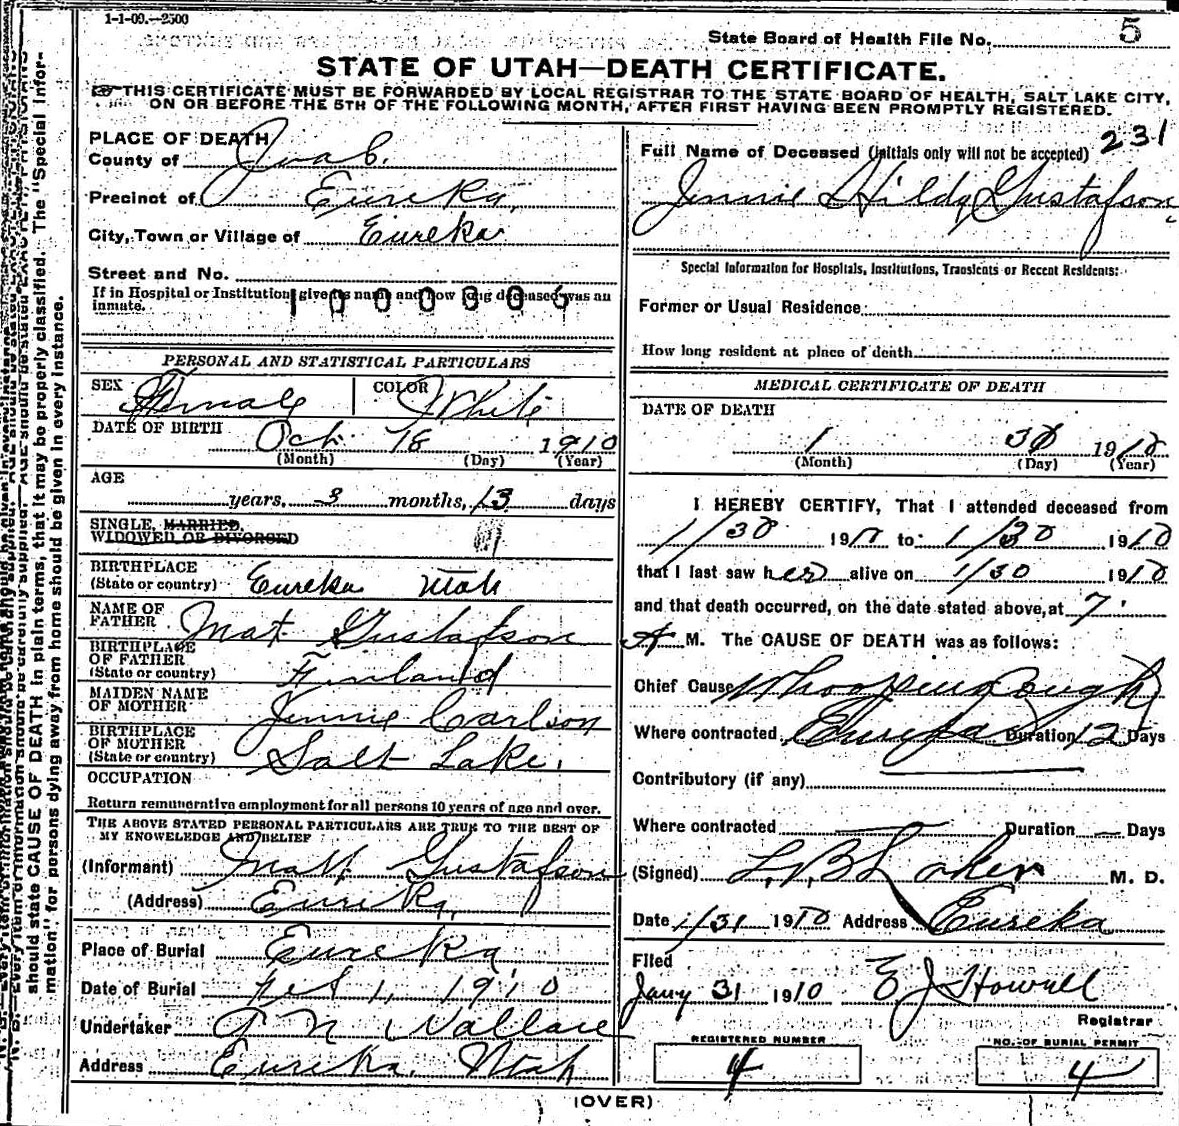 1-1-09.—2500
State Board of Health File No. 5
STATE OF UTAH—DEATH CERTIFICATE.
THIS CERTIFICATE MUST BE FORWARDED BY LOCAL REGISTRAR TO THE STATE BOARD OF HEALTH, SALT LAKE CITY,
ON OR BEFORE THE 5TH OF THE FOLLOWING MONTH, AFTER FIRST HAVING BEEN PROMPTLY REGISTERED.
PLACE OF DEATH
County of Juab.
Precinct of Eureka,
City, Town or Village of Eureka
Street and No.
If in Hospital or Institution give its name and how long deceased was an
inmate.
PERSONAL AND STATISTICAL PARTICULARS
SEX Female COLOR White
DATE OF BIRTH Oct. 18 1910
(Month) (Day) (Year)
AGE
years, 3 months, 13 days
SINGLE, MARRIED,
WIDOWED OR DIVORCED
BIRTHPLACE
(State or country) Eureka Utah
NAME OF
FATHER Mat Gustafson
BIRTHPLACE
OF FATHER
(State or country) Finland
MAIDEN NAME
OF MOTHER Jennie Carlson
BIRTHPLACE
OF MOTHER
(State or country) Salt Lake.
OCCUPATION
Return remunerative employment for all persons 10 years of age and over.
THE ABOVE STATED PERSONAL PARTICULARS ARE TRUE TO THE BEST OF
MY KNOWLEDGE AND BELIEF
(Informant) Matt. Gustafson
(Address) Eureka,
Place of Burial Eureka
Date of Burial Feb 1, 1910
Undertaker Wallace
Address Eureka, Utah
231
Full Name of Deceased (initials only will not be accepted)
Jennie Hilda Gustafson
Special Information for Hospitals, Institutions, Transients or Recent Residents:
Former or Usual Residence
How long resident at place of death
MEDICAL CERTIFICATE OF DEATH
DATE OF DEATH
1 30 1910
(Month) (Day) (Year)
I HEREBY CERTIFY, That I attended deceased from
1/30 1910 to 1/30 1910
that I last saw her alive on 1/30 1910
and that death occurred, on the date stated above, at 7
A M. The CAUSE OF DEATH was as follows:
Chief Cause Whooping Cough
Where contracted Eureka Duration 12 Days
Contributory (if any)
Where contracted Duration — Days
(Signed) M. D.
Date 1/31 1910 Address Eureka
Filed
Jany 31 1910 E J Howell
Registrar
REGISTERED NUMBER
4
NO. OF BURIAL PERMIT
4
(OVER)
should state CAUSE OF DEATH in plain terms, that it may be properly classified. The "Special Infor-
mation" for persons dying away from home should be given in every instance.